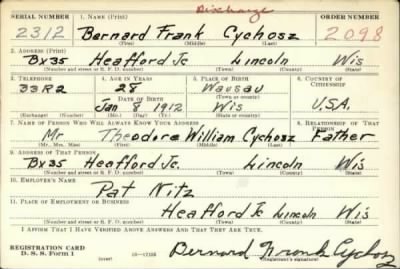 Discharge
SERIAL NUMBER 1. NAME (Print) ORDER NUMBER
2312 Bernard Frank Cychosz 2098
(First) (Middle) (Last)
2. ADDRESS (Print)
Bx35 Heafford Jc Lincoln Wis
(Number and street or R. F. D. number) (Town) (County) (State)
3. TELEPHONE 4. AGE IN YEARS 5. PLACE OF BIRTH 6. COUNTRY OF CITIZENSHIP
33R2 28 Wausau
DATE OF BIRTH (Town or county)
Jan 8 1912 Wis U.S.A.
(Exchange) (Number) (Mo.) (Day) (Yr.) (State or country)
7. NAME OF PERSON WHO WILL ALWAYS KNOW YOUR ADDRESS 8. RELATIONSHIP OF THAT PERSON
Mr Theodore William Cychosz Father
(Mr., Mrs., Miss) (First) (Middle) (Last)
9. ADDRESS OF THAT PERSON
Bx35 Heafford Jc. Lincoln Wis
(Number and street or R. F. D. number) (Town) (County) (State)
10. EMPLOYER'S NAME
Pat Nitz
11. PLACE OF EMPLOYMENT OR BUSINESS
Heafford Jc Lincoln Wis
(Number and street or R. F. D. number) (Town) (County) (State)
I AFFIRM THAT I HAVE VERIFIED ABOVE ANSWERS AND THAT THEY ARE TRUE.
REGISTRATION CARD
D. S. S. Form 1 16—17105 Bernard Frank Cychosz
(Registrant's signature)